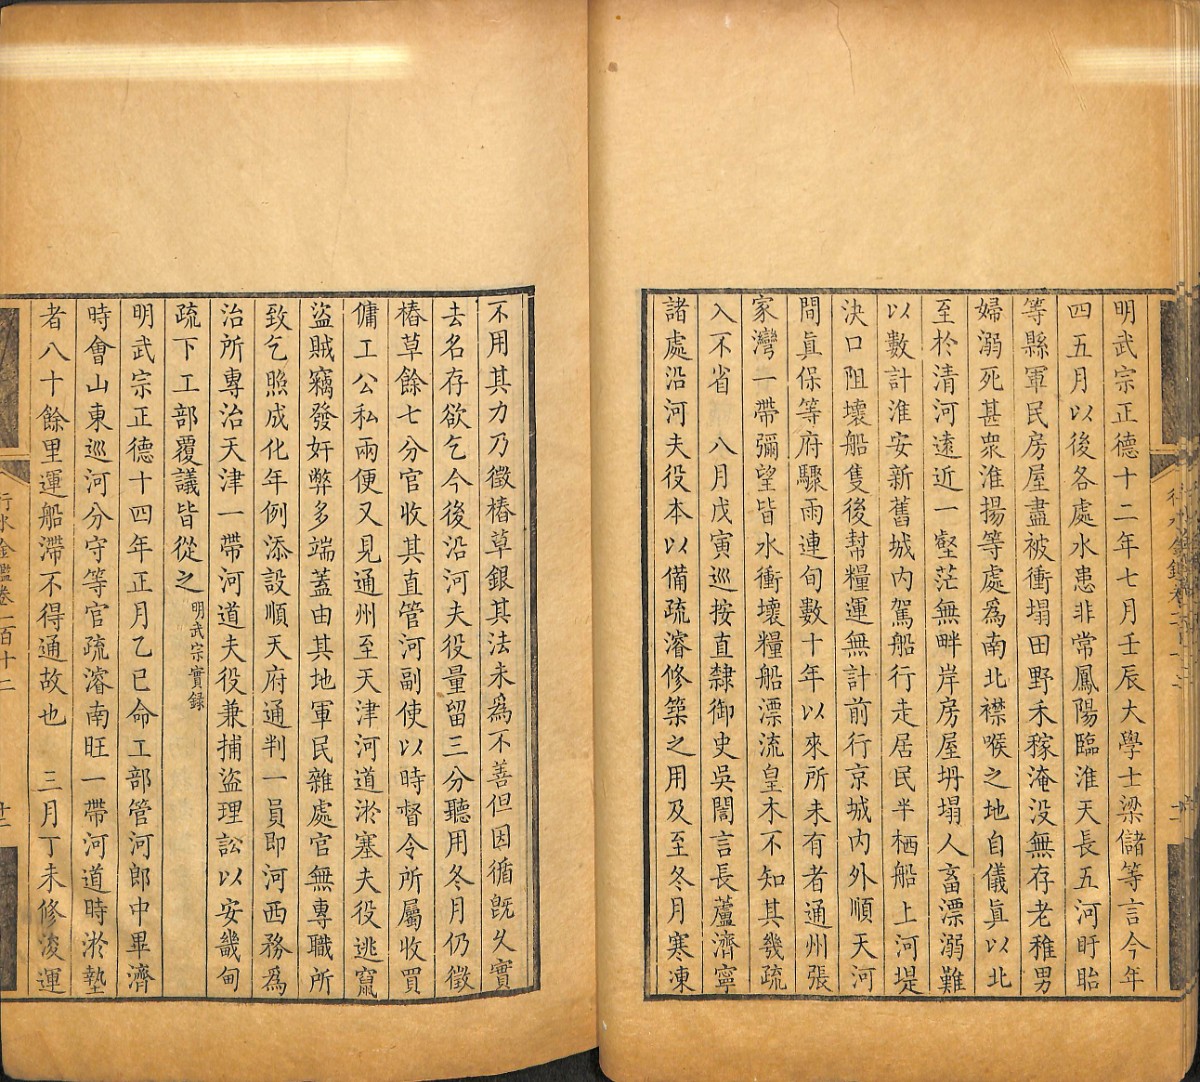 明武宗正德十二年七月壬辰大學士梁儲等言今年
四五月以後各處水患非常鳳陽臨淮天長五河盱眙
等縣軍民房屋盡被衝塌田野禾稼淹没無存老稚男
婦溺死甚衆淮揚等處爲南北襟喉之地自儀眞以北
至於清河遠近一壑茫無畔岸房屋坍塌人畜漂溺難
以數計淮安新舊城内駕船行走居民半栖船上河堤
決口阻壞船隻後幫糧運無計前行京城内外順天河
間眞保等府驟雨連旬數十年以來所未有者通州張
家灣一帶彌望皆水衝壞糧船漂流皇木不知其幾疏
入不省　八月戊寅巡按直隸御史吳誾言長蘆濟寧
諸處沿河夫役本以備疏濬修築之用及至冬月寒凍
不用其力乃徵樁草銀其法未爲不善但因循旣久實
去名存欲乞今後沿河夫役量留三分聽用冬月仍徵
樁草餘七分官收其直管河副使以時督令所屬收買
傭工公私兩便又見通州至天津河道淤塞夫役逃竄
盜賊竊發奸弊多端蓋由其地軍民雜處官無專職所
致乞照成化年例添設順天府通判一員即河西務爲
治所專治天津一帶河道夫役兼捕盜理訟以安畿甸
疏下工部覆議皆從之明武宗實録
明武宗正德十四年正月乙巳命工部管河郎中畢濟
時會山東巡河分守等官疏濬南旺一帶河道時淤墊
者八十餘里運船滯不得通故也　三月丁未修浚運
行水金鑑卷一百十二
十二